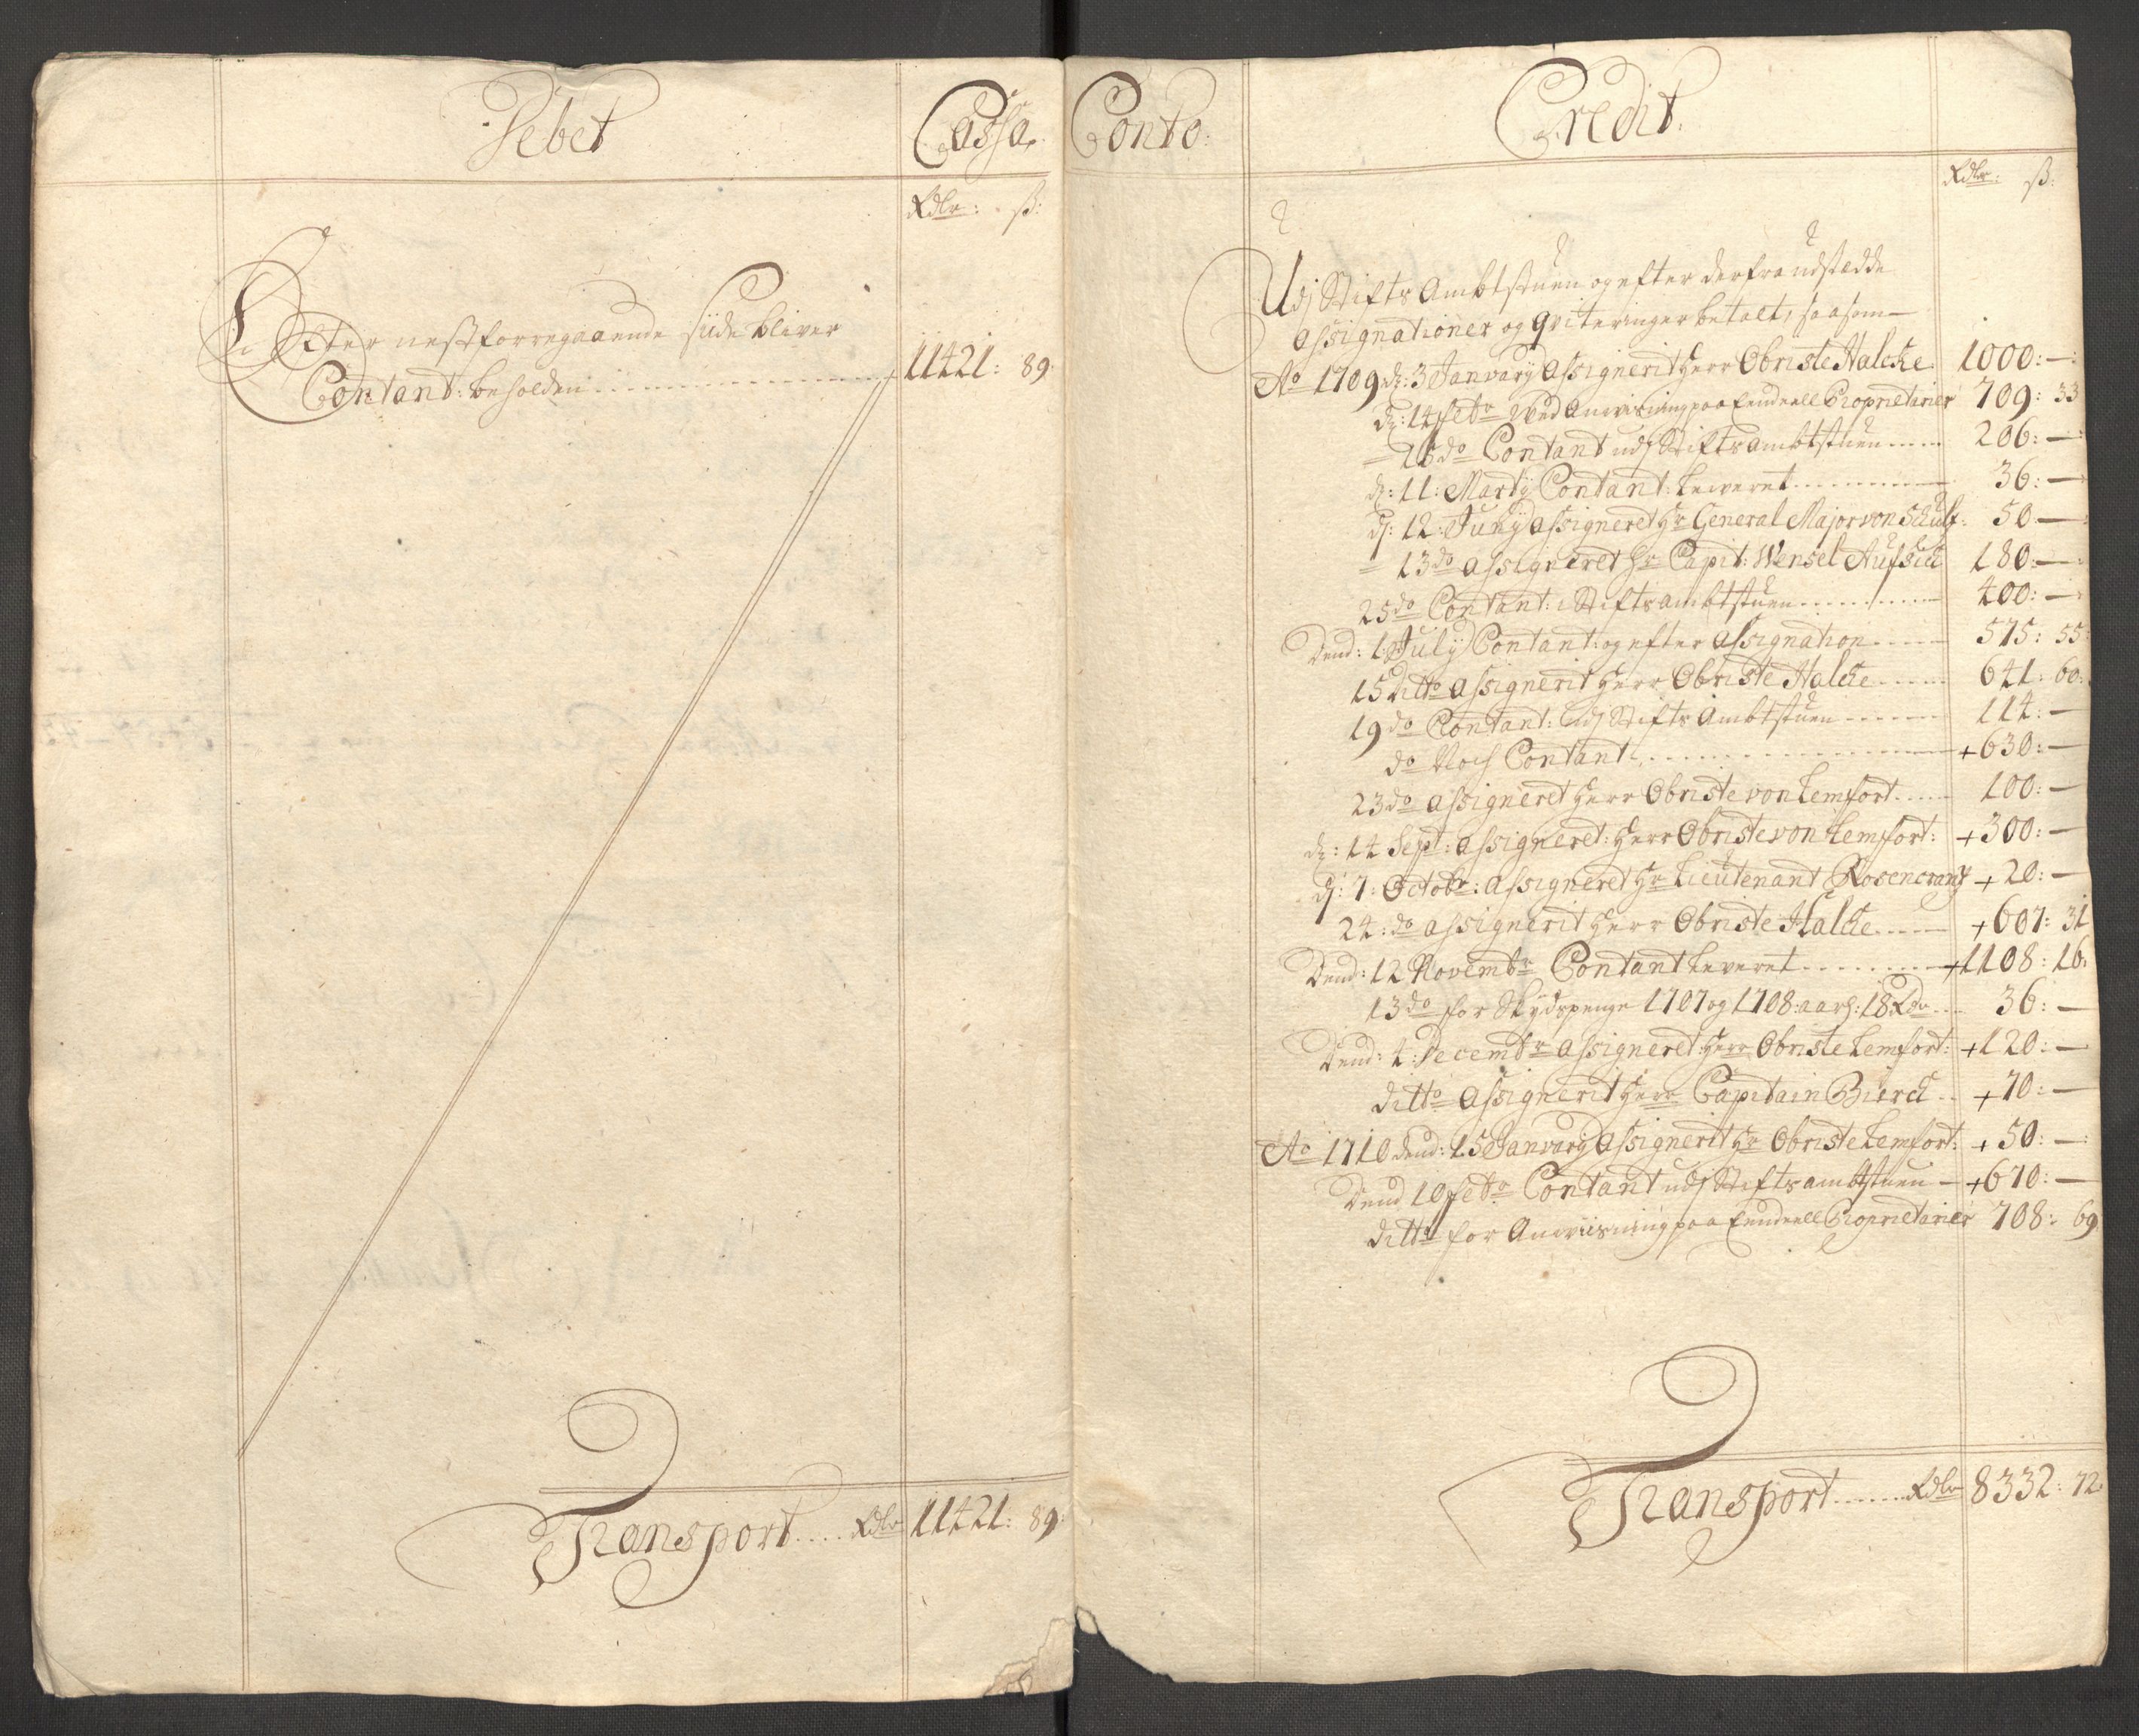 Debet
Cassa
Rdlr: ß:
Efter nestforregaaende siide bliver
Contant: beholden 11421: 89
Transport Rdlr 11421: 89:
Conto:
Credit.
Rdlr: ß:
Udj Stifts Ambtstuen og efter derfra udstædde
assignationer og qviteringer betalt, saasom
Ao 1709 d: 3 Janvary assignerit Herr Obriste Halcke 1000: —
d: 14 febr: Ved Anviisning paa Proprietarier 709: 33
do Contant udj Stiftsambtstuen 206: —
d: 11: Marty Contant: leveret 36: —
d: 12: Juny assigneret Hr General Major von Schultz: 50 —
13 do assigneret Hr Capit: Wensel 180: —
25 do Contant: i Stiftsambtstuen 400: —
Dend: 1 July Contant: og efter assignation 575: 55
15 ditto assignerit Herr Obriste Halcke 641: 60:
19 do Contant: udj Stifts Ambtstuen 114: —
do Noch Contant +630: —
23 do assigneret Herr Obriste von Lemfort 100: —
d: 14 Sept: assigneret: Herr Obriste von Lemfort: +300: —
d: 7: Octobr: assigneret Hr Lieutenant Rosencrantz +20: —
24: do assignerit Herr Obriste Halcke +607: 31
Dend: 12 Novembr Contant leveret +1108: 16:
13 do for Skydspenge 1707 og 1708: aarl: 18 Rdr 36: —
Dend: 4: Decembr assigneret: Herr Obriste Lemfort: +120: —
ditto assignerit Herr Capitain Bierck +70: —
Ao 1710 dend: 15 Janvary assignerit Hr Obriste Lemfort: +50: —
Dend 10 febr Contant udj Stiftsambtstuen +670: —
ditto for Anviisning paa Proprietarier 708: 69
Transport Rdlr 8332: 72: